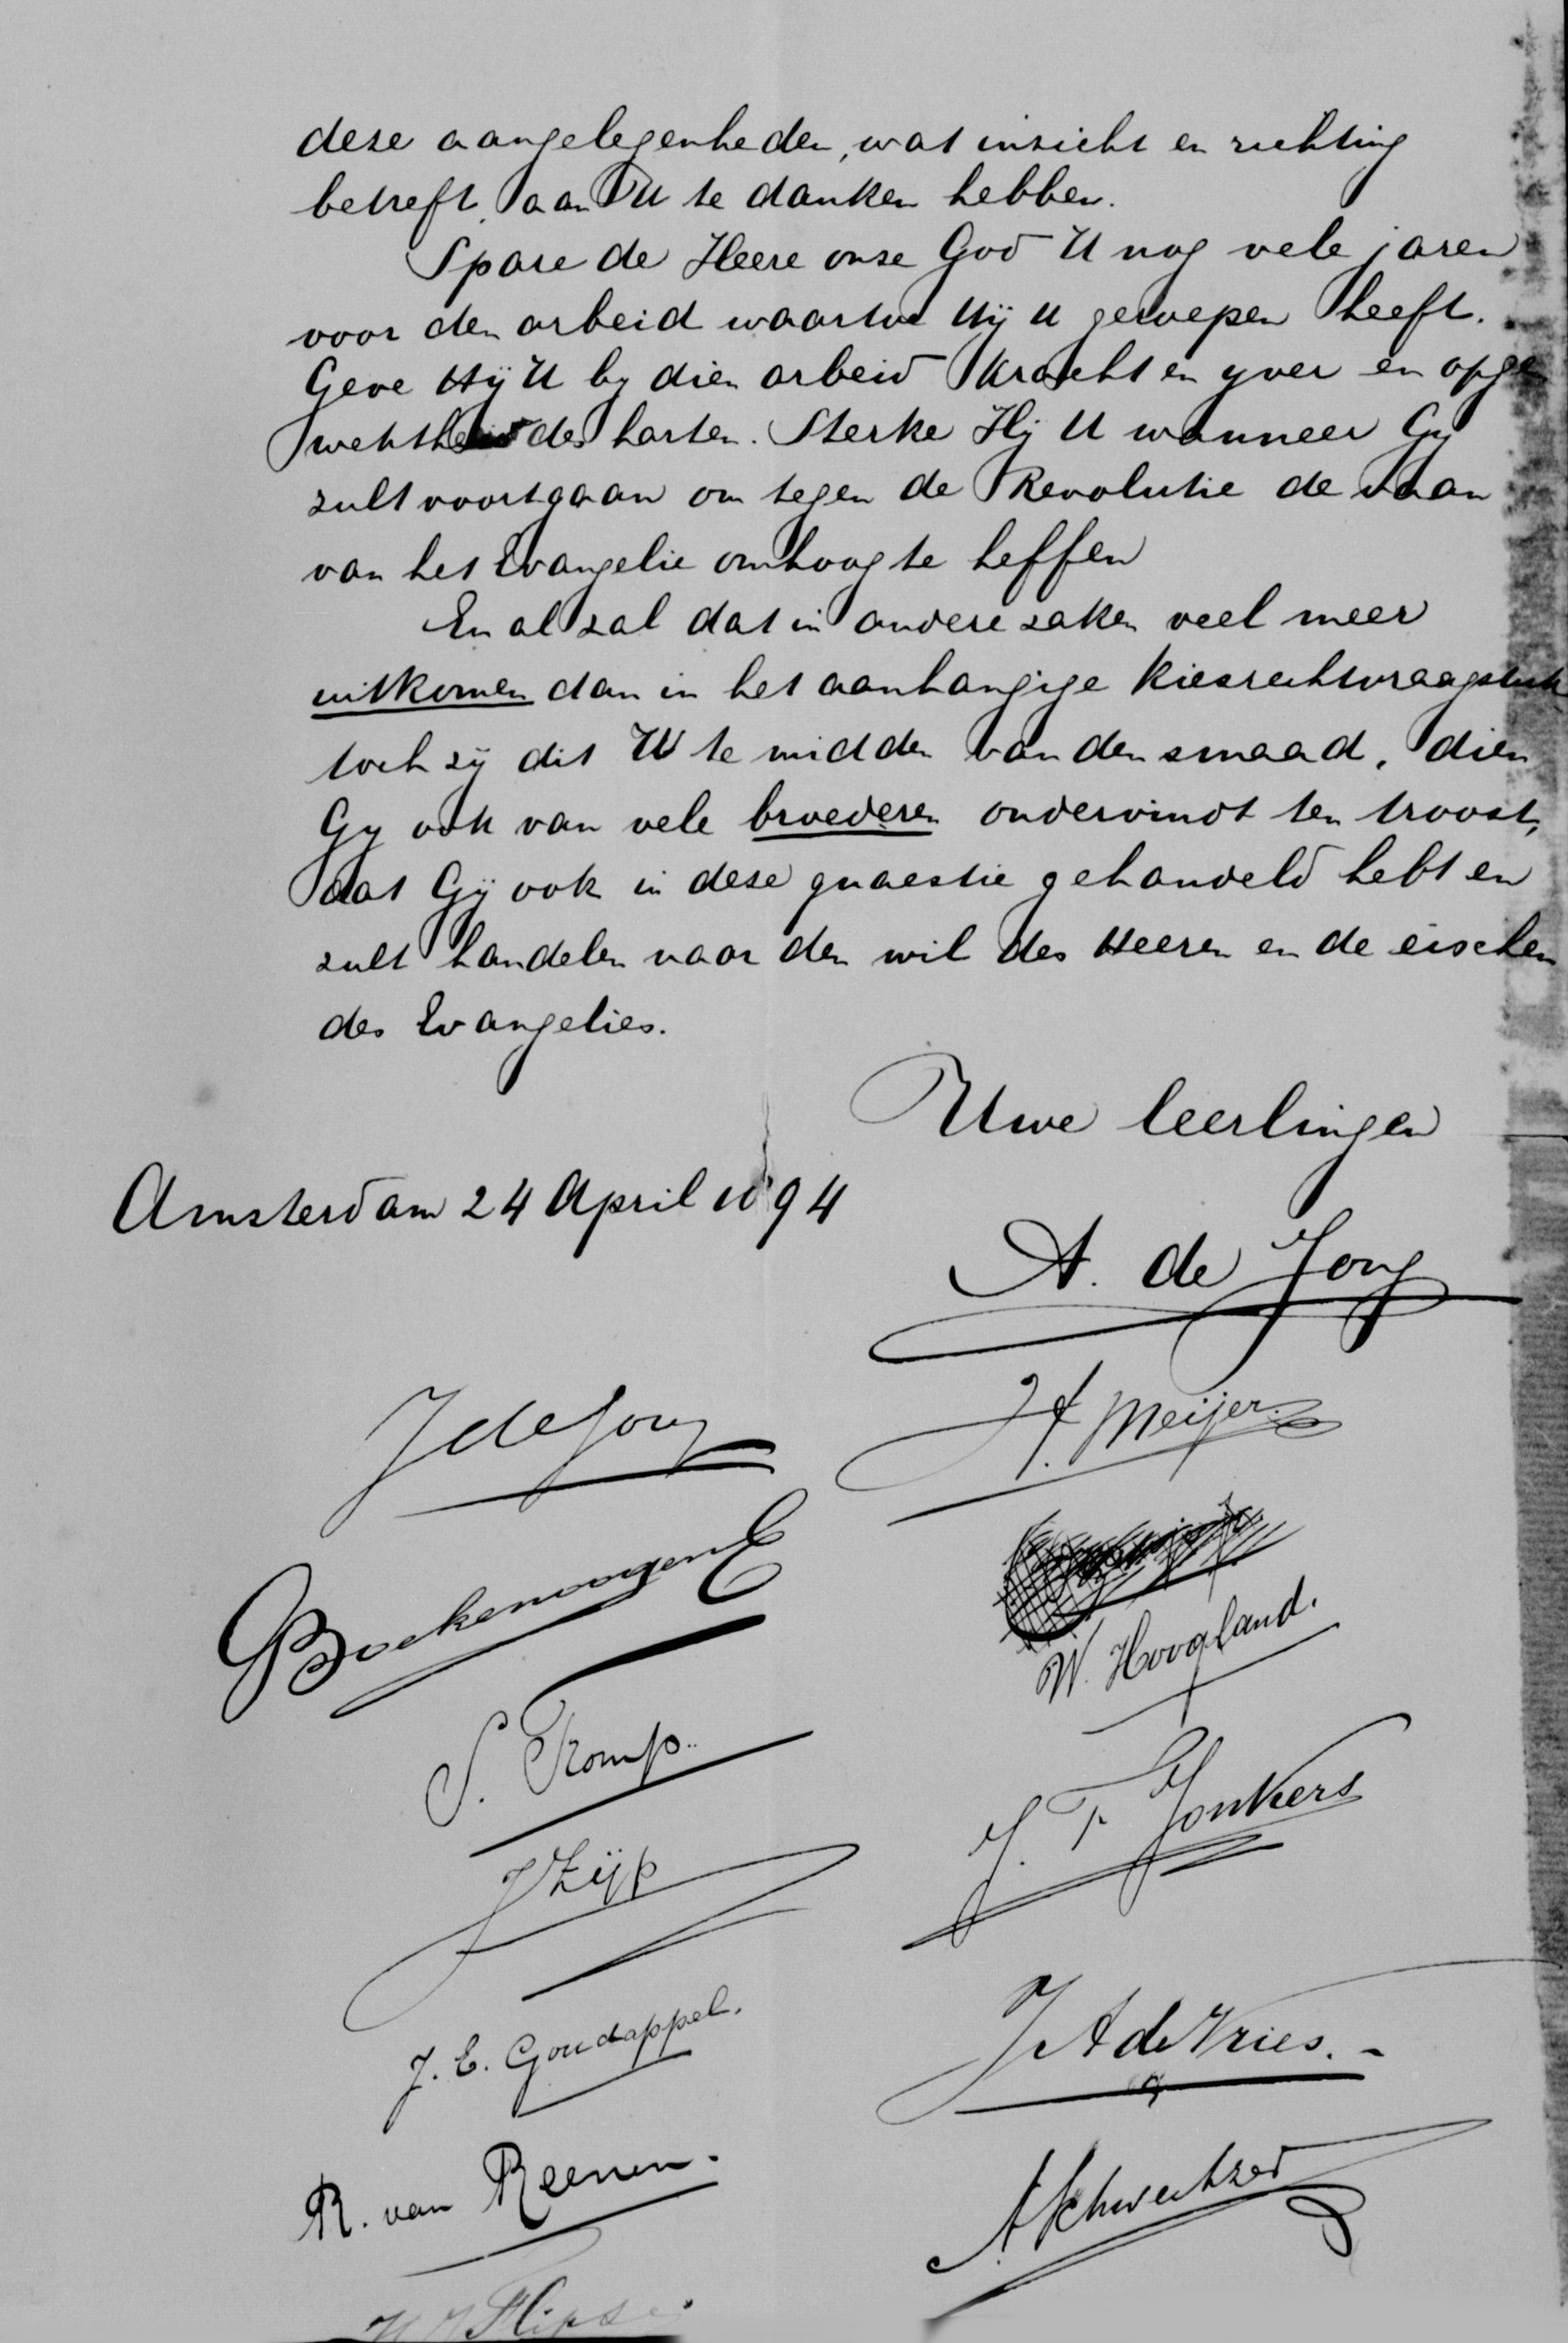 deze aangelegenheden, wat inzicht en richting
betreft, aan U te danken hebben.
Spare de Heere onze God U nog vele jaren
voor den arbeid waartoe Hij U geroepen heeft.
Geve Hij U by dien arbeid kracht en yver en opge
wektheid des harten. Sterke Hij U wanneer Gy
zult voortgaan om tegen de Revolutie de vaan
van het Evangelie omhoog te heffen
En al zal dat in andere zaken veel meer
uitkomen dan in het aanhangige Kiesrechtvraagstuk
toch zij dit U te midden van den smaad, dien
Gy ook van vele broederen ondervindt ten troost,
dat Gij ook in deze quaestie gehandeld hebt en
zult handelen naar den wil des Heeren en de eischen
des Evangelies.
Uwe leerlingen
Amsterdam 24 April 1894
A. de Jong
J de Jong
Meijer
Boekenoogen
W. Hoogland.
S. Tromp.
J. F. Jonkers
J Zijp
J. E. Goudappel.
J A de Vries.
R. van Reenen.
A Schweitzer
Flipse